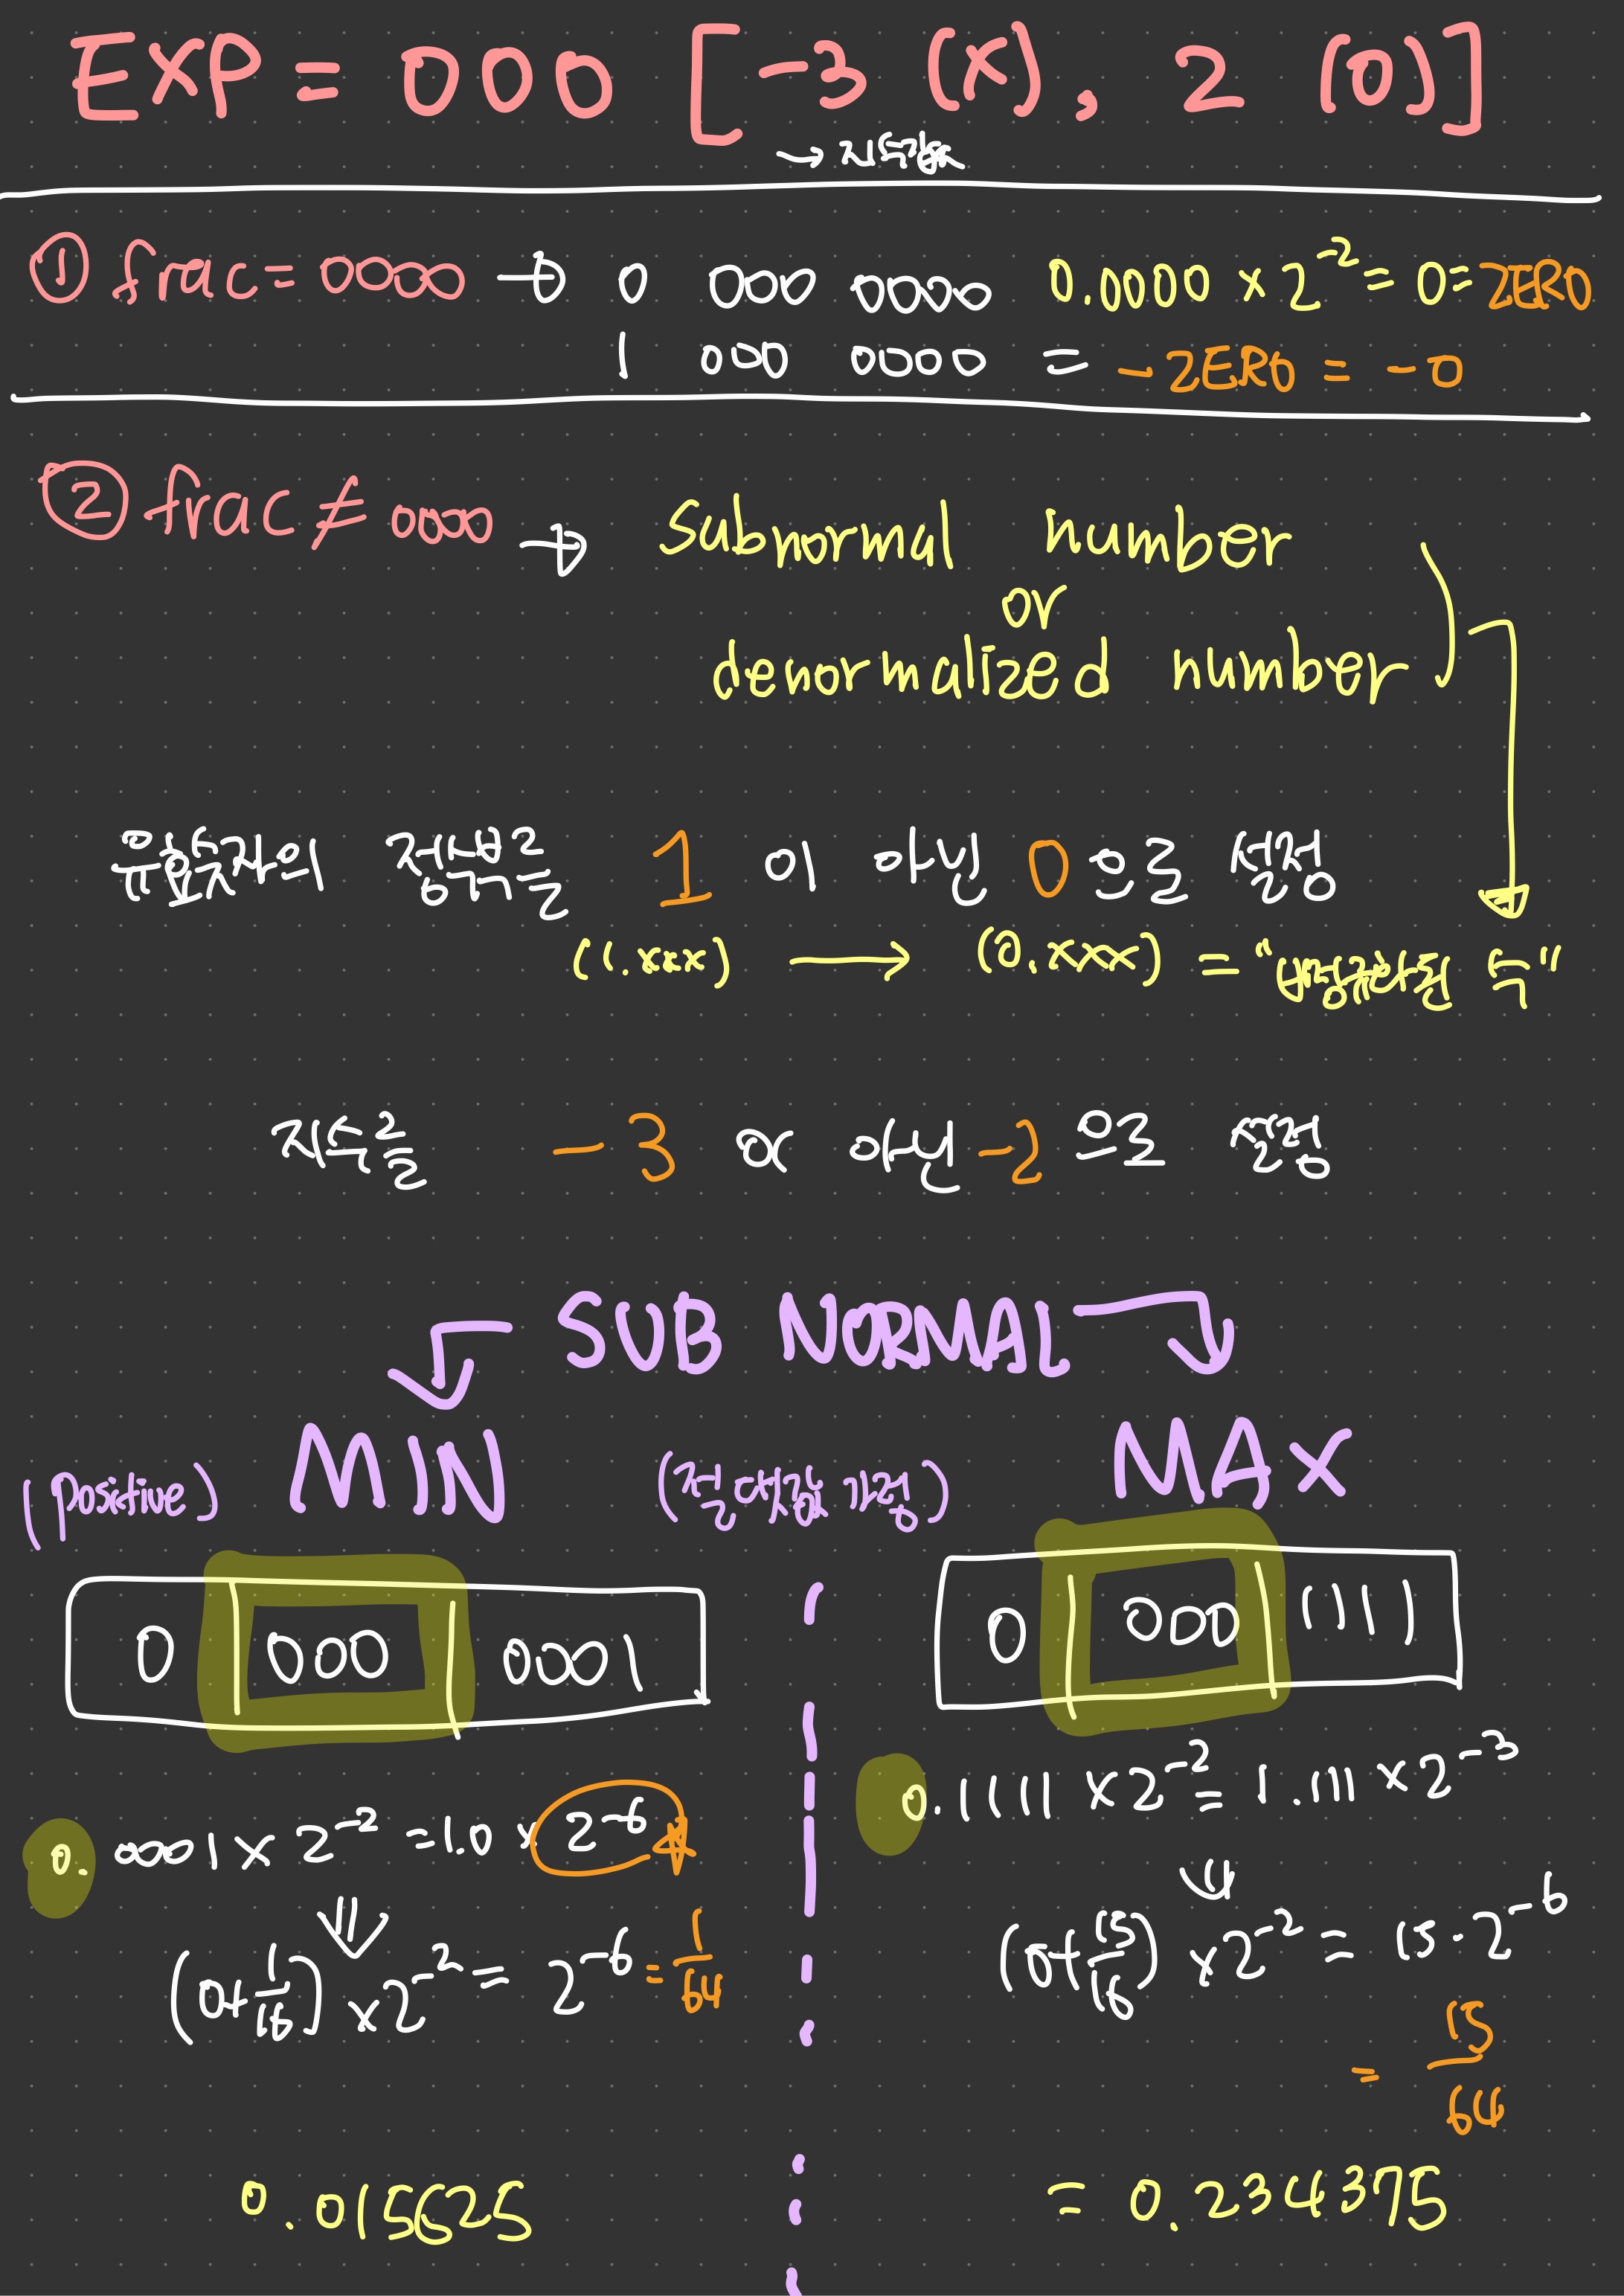 EXP = 000 [ -3 (X), 2 (0)]
→ 지수가
① frac = 0000 → 0 000 0000 0.0000 × 2⁻² = 0 = ZERO
1 000 0000 = -ZERO = -0
② frac ≠ 0000 → subnormal number
or
denormalized number
1 이 아닌 0으로 간주
(1.xxx) → (0.xxx) = "비정규화된 수"
지수는 -3 이 아닌 -2 으로 간주
SUB NORMAL
(positive) MIN MAX
0 000 0001 0 000 1111
0.0001 × 2⁻² = 1.0 × 2⁻⁶ 0.1111 × 2⁻² = 1.111 × 2⁻³
(0+1/16) × 2⁻² = 2⁻⁶ = 1/64 (0+15/16) × 2⁻² = 15·2⁻⁶
= 15/64
0.015625 = 0.234375